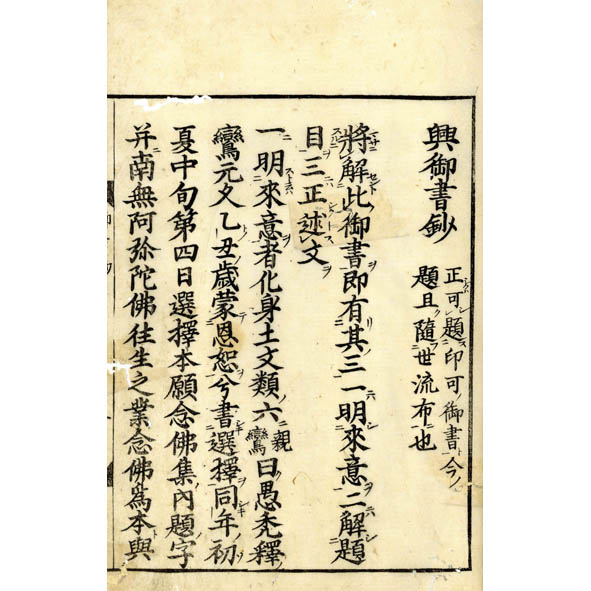 興御書鈔
正可題印可御書今
題且隨世流布也
將解此御書即有其三一明來意二解題
目三正述文
一明來意者化身土文類六親鸞曰愚禿釋
鸞元久乙丑歲蒙恩恕兮書選擇同年初
夏中旬第四日選擇本願念佛集內題字
并南無阿弥陀佛往生之業念佛為本與